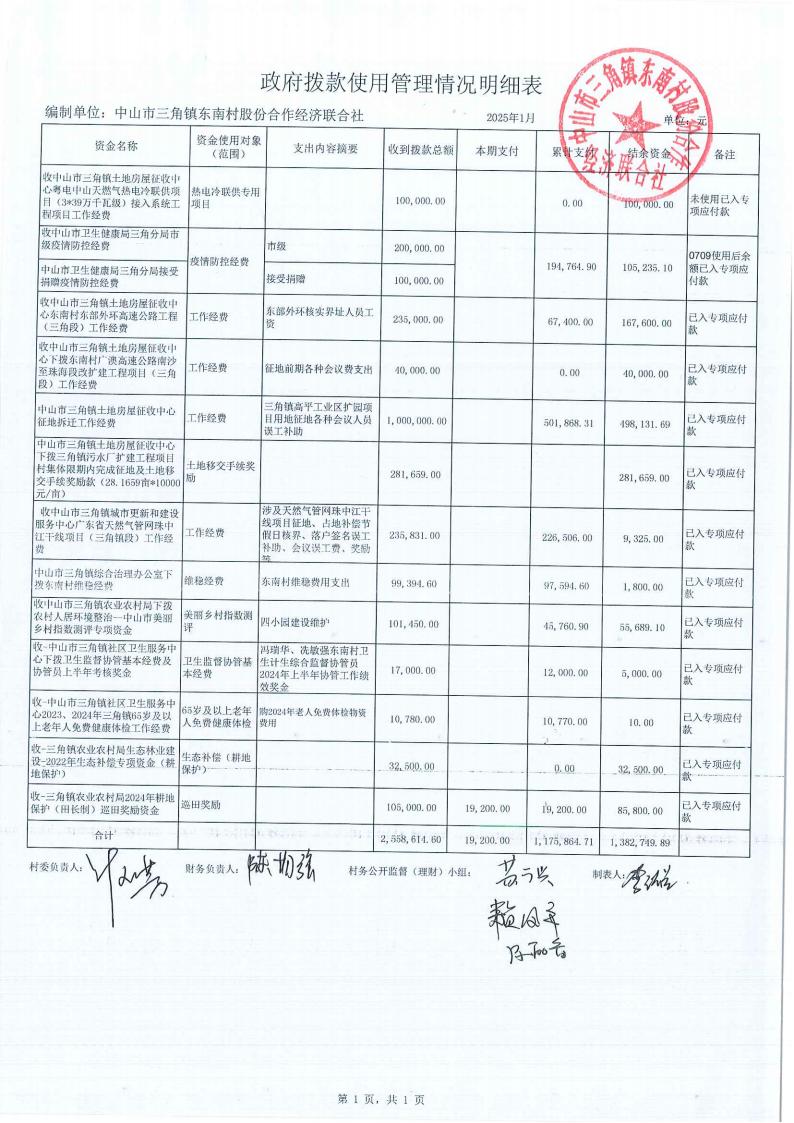 政府拨款使用管理情况明细表
编制单位：中山市三角镇东南村股份合作经济联合社
2025年1月
单位：元
中山市三角镇东南村股份合作
经济联合社
资金名称
资金使用对象
（范围）
支出内容摘要
收到拨款总额
本期支付
累计支付
结余资金
备注
收中山市三角镇土地房屋征收中
心粤电中山天然气热电冷联供项
目（3*39万千瓦级）接入系统工
程项目工作经费
热电冷联供专用
项目
100,000.00
0.00
100,000.00
未使用已入专
项应付款
收中山市卫生健康局三角分局市
级疫情防控经费
疫情防控经费
市级
200,000.00
194,764.90
105,235.10
0709使用后余
额已入专项应
付款
中山市卫生健康局三角分局接受
捐赠疫情防控经费
接受捐赠
100,000.00
收中山市三角镇土地房屋征收中
心东南村东部外环高速公路工程
（三角段）工作经费
工作经费
东部外环核实界址人员工
资
235,000.00
67,400.00
167,600.00
已入专项应付
款
收中山市三角镇土地房屋征收中
心下拨东南村广澳高速公路南沙
至珠海段改扩建工程项目（三角
段）工作经费
工作经费
征地前期各种会议费支出
40,000.00
0.00
40,000.00
已入专项应付
款
中山市三角镇土地房屋征收中心
征地拆迁工作经费
工作经费
三角镇高平工业区扩园项
目用地征地各种会议人员
误工补助
1,000,000.00
501,868.31
498,131.69
已入专项应付
款
中山市三角镇土地房屋征收中心
下拨三角镇污水厂扩建工程项目
村集体限期内完成征地及土地移
交手续奖励款（28.1659亩*10000
元/亩）
土地移交手续奖
励
281,659.00
281,659.00
已入专项应付
款
收中山市三角镇城市更新和建设
服务中心广东省天然气管网珠中
江干线项目（三角镇段）工作经
费
工作经费
涉及天然气管网珠中江干
线项目征地、占地补偿节
假日核界、落户签名误工
补助、会议误工费、奖励
等
235,831.00
226,506.00
9,325.00
已入专项应付
款
中山市三角镇综合治理办公室下
拨东南村维稳经费
维稳经费
东南村维稳费用支出
99,394.60
97,594.60
1,800.00
已入专项应付
款
收中山市三角镇农业农村局下拨
农村人居环境整治—中山市美丽
乡村指数测评专项资金
美丽乡村指数测
评
四小园建设维护
101,450.00
45,760.90
55,689.10
已入专项应付
款
收-中山市三角镇社区卫生服务中
心下拨卫生监督协管基本经费及
协管员上半年考核奖金
卫生监督协管基
本经费
冯瑞华、冼敏强东南村卫
生计生综合监督协管员
2024年上半年协管工作绩
效奖金
17,000.00
12,000.00
5,000.00
已入专项应付
款
收-中山市三角镇社区卫生服务中
心2023、2024年三角镇65岁及以
上老年人免费健康体检工作经费
65岁及以上老年
人免费健康体检
购2024年老人免费体检物资
费用
10,780.00
10,770.00
10.00
已入专项应付
款
收-三角镇农业农村局生态林业建
设-2022年生态补偿专项资金（耕
地保护）
生态补偿（耕地
保护）
32,500.00
0.00
32,500.00
已入专项应付
款
收-三角镇农业农村局2024年耕地
保护（田长制）巡田奖励资金
巡田奖励
105,000.00
19,200.00
19,200.00
85,800.00
已入专项应付
款
合计
2,558,614.60
19,200.00
1,175,864.71
1,382,749.89
村委负责人：
财务负责人：
村务公开监督（理财）小组：
制表人：
第 1 页，共 1 页